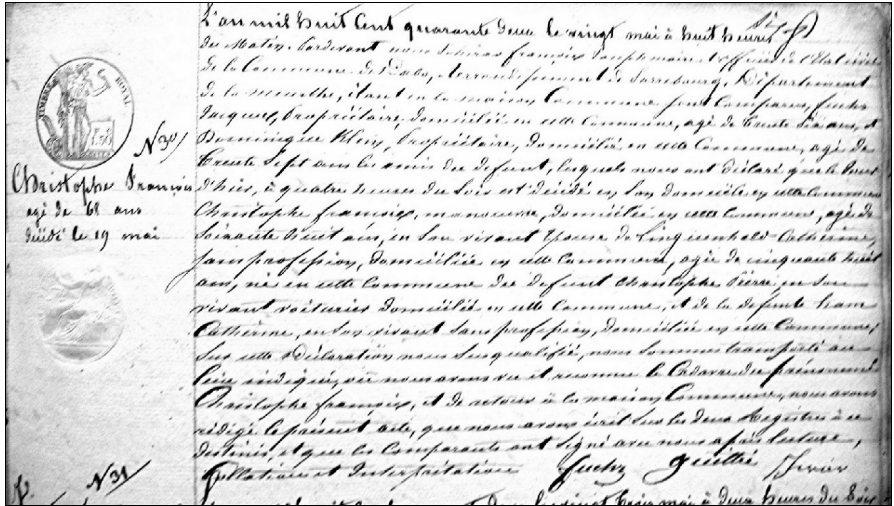 L'an mil huit Cent quarante deux le vingt mai à huit heures
du Matin. Pardevant nous françois officier de l'Etat civil
de la Commune de Dabo, Arrondissement de Sarrebourg, Département
de la Meurthe, étant en la maison Commune sont Comparus, fuchs
Jacques, Propriétaire, domicilié en cette Commune, agé de trente Six ans, et
Dominique Klein, Propriétaire, domicilié en cette Commune, agé de
trente Sept ans les amis du defunt, lesquels nous ont déclaré que le Jour
d'hier, à quatre heures du Soir est décédé en Son domicile en cette Commune
Christophe françois, manoeuvre, domicilié en cette Commune, agé de
Soixante huit ans, en Son vivant Epoux de Catherine,
Sans profession, domiciliée en cette Commune, agée de cinquante huit
ans, né en cette Commune du defunt Christophe Pierre, en Son
vivant voiturier domicilié en cette Commune, et de la defunte
Catherine, en Son vivant Sans profession, domiciliée en cette Commune;
Sur cette Déclaration nous Susqualifié, nous Sommes transporté au
lieu indiqué, où nous avons vu et reconnu le Cadavre du prénommé
Christophe françois, et de retour à la maison Commune, nous avons
rédigé le présent acte, que nous avons écrit Sur les deux Registres à ce
destinés, et que les Comparants ont Signé avec nous après lecture,
Collation et Interprétation
fuchs
TIMBRE ROYAL
N 30
Christophe François
agé de 68 ans
décédé le 19 mai
N 31
mai à deux heures du Soir